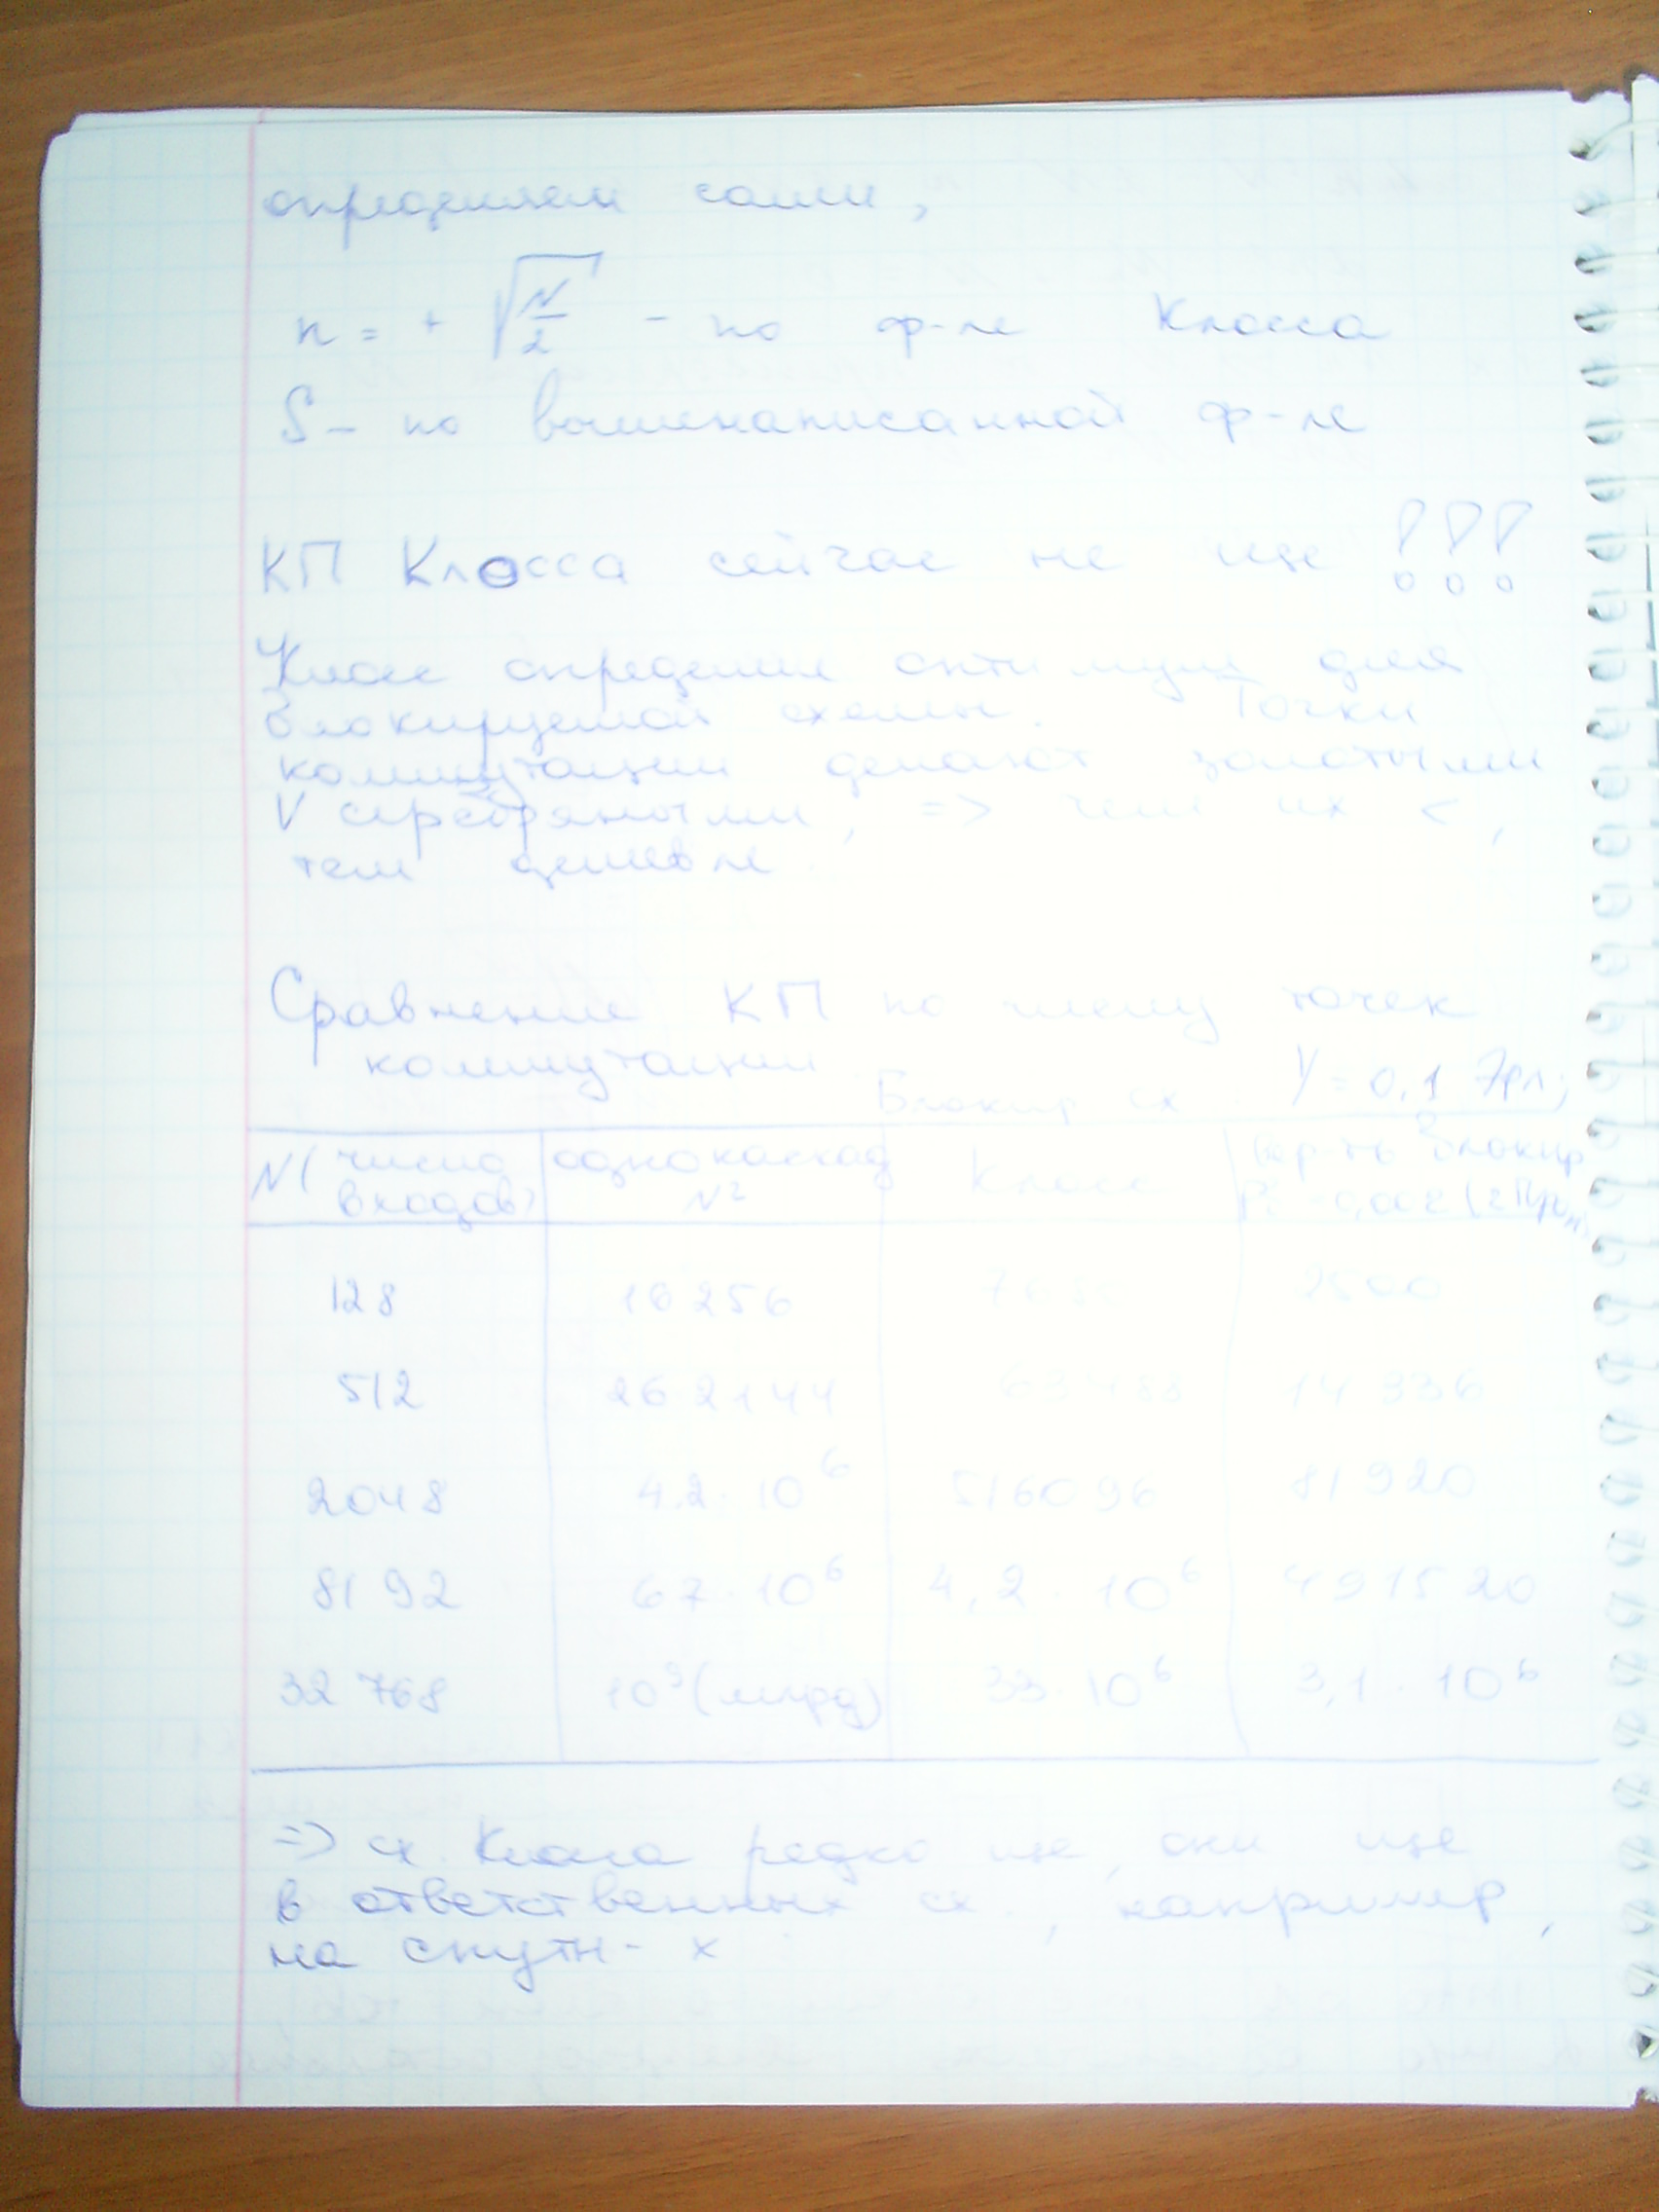 определяем сами,
n = + √(N/2) - по ф-ле Клосса
S - по вышенаписанной ф-ле
КП Клосса сейчас не исп !!!
Клосс определил оптимум для
блокируемой схемы. Точки
коммутации делают золотыми
V серебряными, => чем их <,
тем дешевле.
Сравнение КП по числу точек
коммутации
Блокир сх Y = 0,1 Эрл;
N (число входов) однокаскад N² Клосс Вер-ть блокир P = 0,002 (2 Пром
128 16256 76 2560
512 262144 63488 14336
2048 4.2 · 10⁶ 516096 81920
8192 67 · 10⁶ 4,2 · 10⁶ 491520
32 768 10⁹ (млрд) 33 · 10⁶ 3,1 · 10⁶
=> сх. Клосса редко исп, они исп
в ответственных сх., например,
на спутн-х